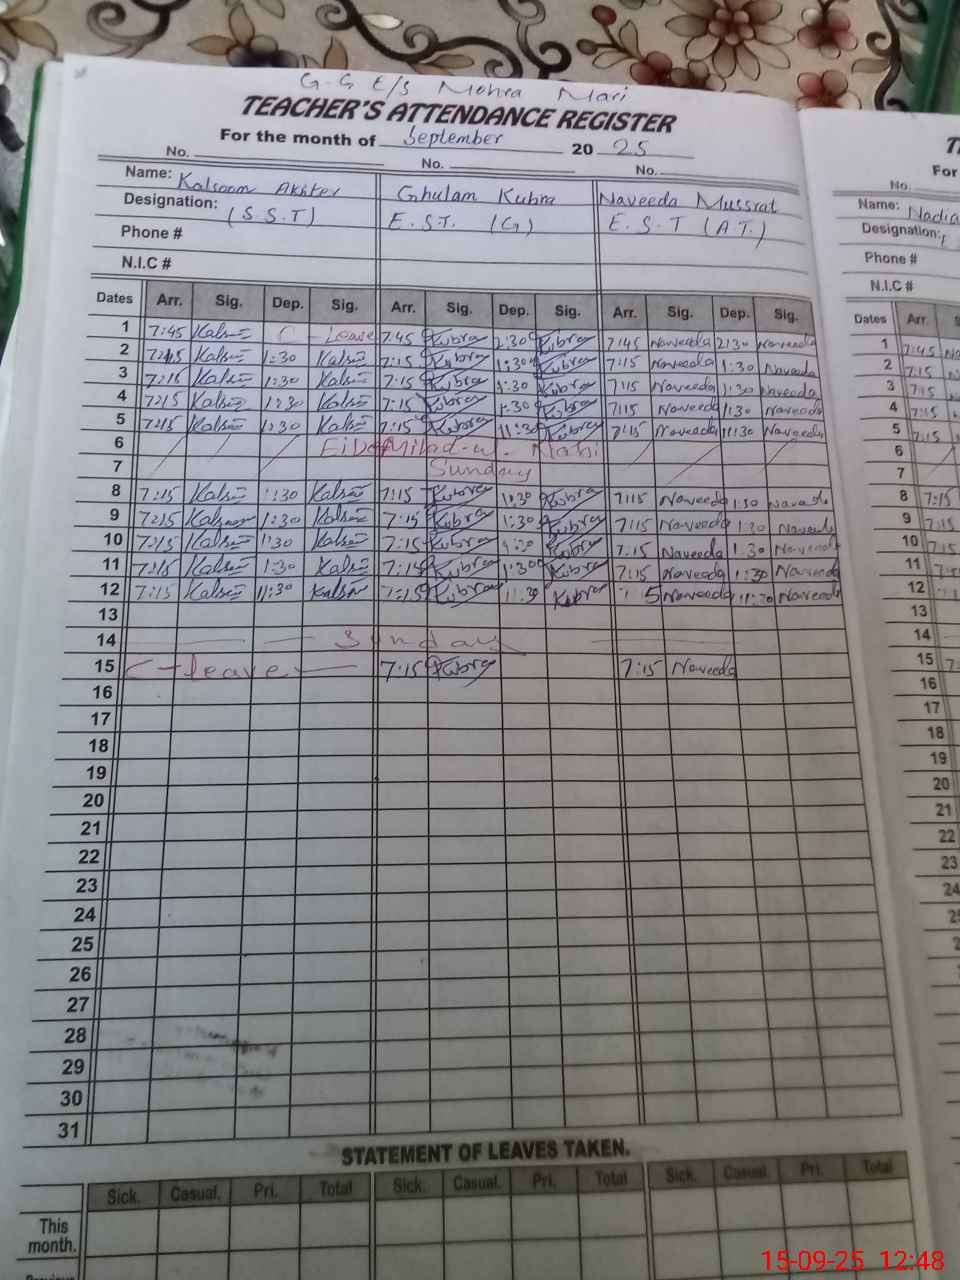 G.G E/S Mohra Mari
TEACHER'S ATTENDANCE REGISTER
For the month of September 20 25
No. No. No.
Name: Kalsoom Akhter Ghulam Kubra Naveeda Mussrat
Designation: (S.S.T) E.S.T. (G) E.S.T (A.T.)
Phone #
N.I.C #
Dates Arr. Sig. Dep. Sig. Arr. Sig. Dep. Sig. Arr. Sig. Dep. Sig.
1 7:45 C - Leave 7:45 Kubra 2:30 Kubra 7:45 Naveeda 2:30 Naveeda
2 7:15 1:30 7:15 Kubra 1:30 Kubra 7:15 Naveeda 1:30 Naveeda
3 7:15 1:30 7:15 Kubra 1:30 Kubra 7:15 Naveeda 1:30 Naveeda
4 7:15 1:30 7:15 Kubra 1:30 Kubra 7:15 Naveeda 1:30 Naveeda
5 7:15 1:30 7:15 Kubra 11:30 Kubra 7:15 Naveeda 11:30 Naveeda
6 Eid Milad-u-Nabi
7 Sunday
8 7:15 1:30 7:15 Kubra 1:30 Kubra 7:15 Naveeda 1:30 Naveeda
9 7:15 1:30 7:15 Kubra 1:30 Kubra 7:15 Naveeda 1:30 Naveeda
10 7:15 1:30 7:15 Kubra 1:30 Kubra 7:15 Naveeda 1:30 Naveeda
11 7:15 1:30 7:15 Kubra 1:30 Kubra 7:15 Naveeda 1:30 Naveeda
12 7:15 11:30 7:15 Kubra 11:30 Kubra Naveeda 11:30 Naveeda
13
14 Sunday
15 C-leave 7:15 Kubra 7:15 Naveeda
16
17
18
19
20
21
22
23
24
25
26
27
28
29
30
31
STATEMENT OF LEAVES TAKEN.
Sick. Casual. Pri. Total Sick. Casual. Pri. Total Sick. Casual. Pri. Total
This
month.
For
No.
Name: Nadia
Designation:
Phone #
N.I.C #
Dates Arr.
1 7:45
2 7:15
3 7:15
4 7:15
5 7:15
6
7
8 7:15
9 7:15
10 7:15
11
12
13
14
15
16
17
18
19
20
21
22
23
24
15-09-25 12:48